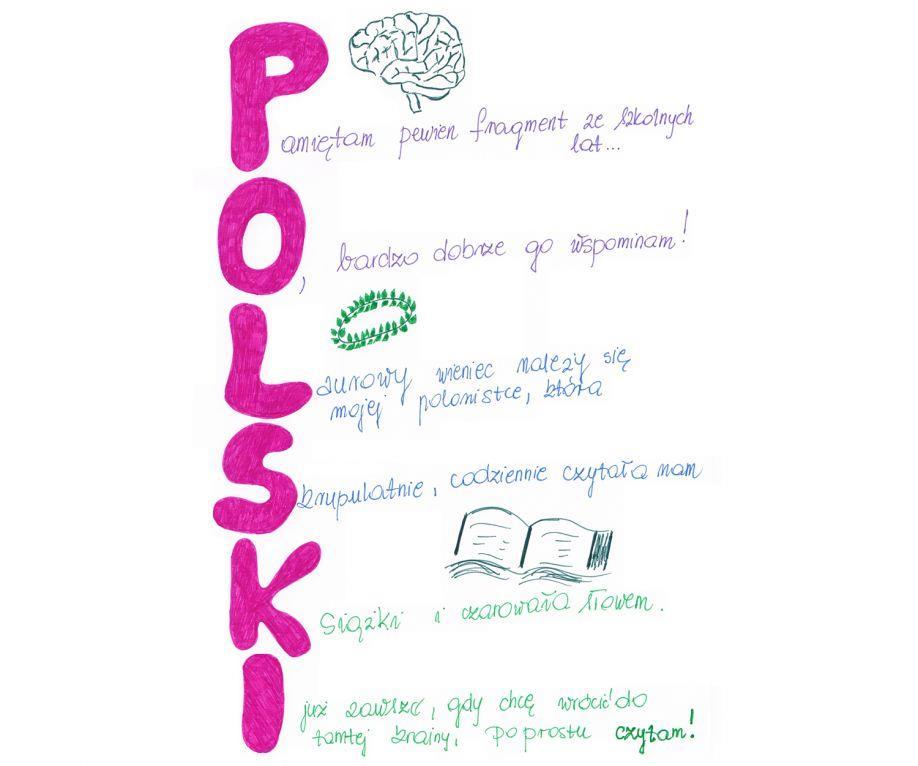 Pamiętam pewien fragment ze szkolnych
lat...
O, bardzo dobrze go wspominam!
Laurowy wieniec należy się
mojej polonistce, która
Skrupulatnie, codziennie czytała nam
Książki i czarowała słowem.
I już zawsze, gdy chcę wrócić do
tamtej krainy, po prostu czytam!